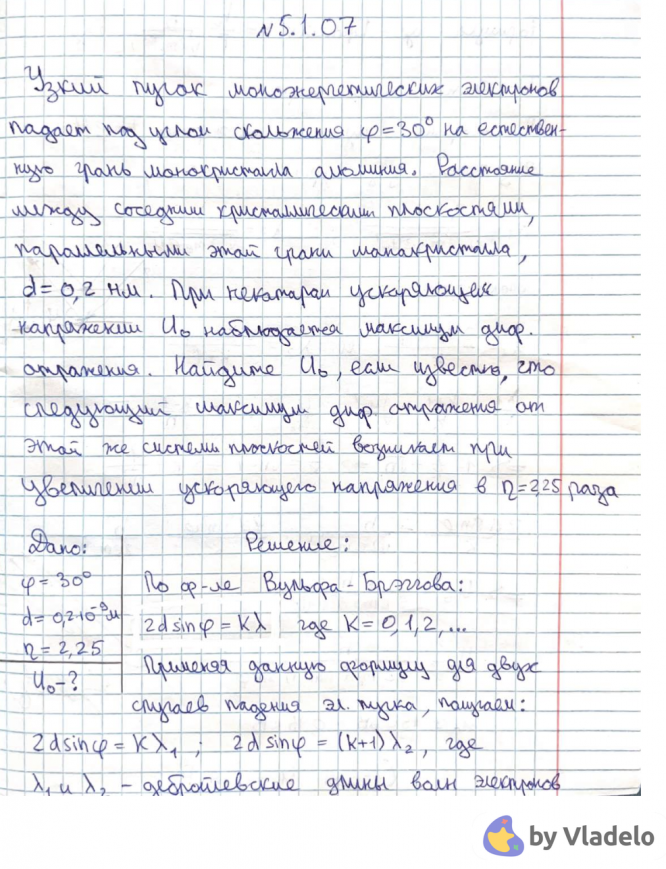 №5.1.07
Узкий пучок моноэнергетических электронов
падает под углом скольжения φ=30° на естествен-
ную грань монокристалла алюминия. Расстояние
между соседними кристаллическими плоскостями,
параллельными этой грани монокристалла,
d=0,2 нм. При некотором ускоряющем
напряжении U₀ наблюдается максимум диф.
отражения. Найдите U₀, если известно, что
следующий максимум диф. отражения от
этой же системы плоскостей возникает при
увеличении ускоряющего напряжения в η=2,25 раза
Дано:
φ=30°
d=0,2·10⁻⁹м
η=2,25
U₀-?
Решение:
По ф-ле Вульфа-Брэггова:
2dsinφ=Kλ, где K=0,1,2,...
Применяя данную формулу для двух
случаев падения эл. пучка, получаем:
2dsinφ=Kλ₁; 2dsinφ=(K+1)λ₂, где
λ₁ и λ₂ - дебройлевские длины волн электронов
by Vladelo